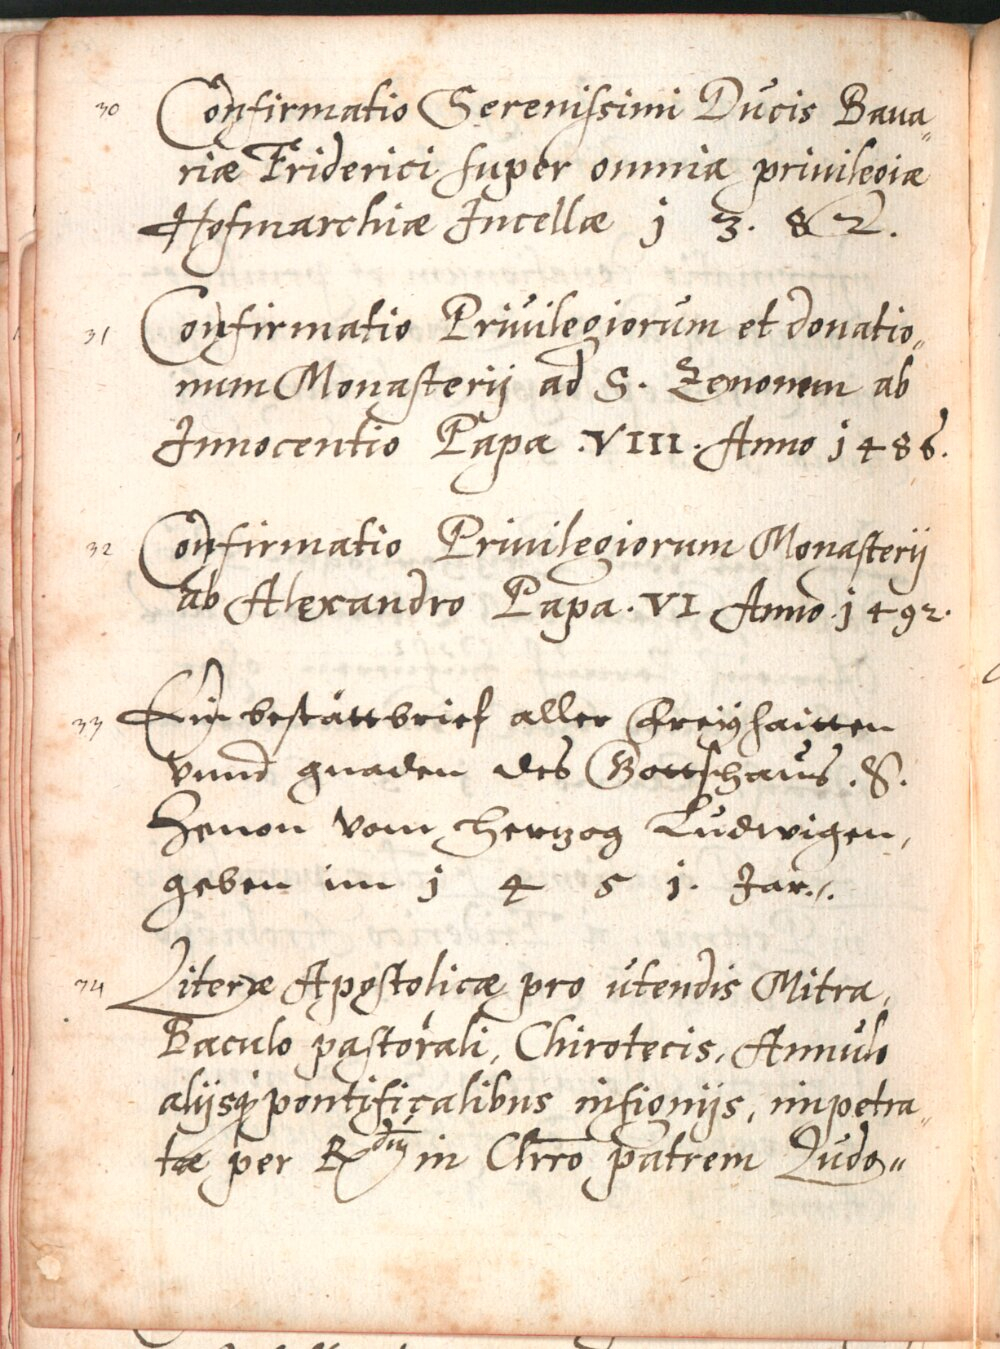 30 Confirmatio Serenissimi Ducis Bava„
riæ Friderici super omnia privilegia
Hofmarchiæ Incellæ j 3. 8 2.
31 Confirmatio Privilegiorum et donatio„
num Monasterij ad S. Zenonem ab
Innocentio Papa .VIII. Anno j486.
32 Confirmatio Privilegiorum Monasterij
ab Alexandro Papa. VI Anno. j492.
33 Ein bestättbrief aller Freÿhaitten
vnnd gnaden des Gottshaus .S.
Zenon vom hertzog Ludwigen,
geben im j 4 5 j. Jar./.
34 Literæ Apostolicæ pro utendis Mitra,
Baculo pastorali, Chirotecis, Annulo
alijsq; pontificalibus insignijs, impetra„
tæ per Rdum in Chrro patrem Ludo„